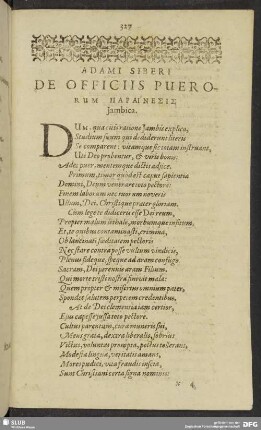 327
ADAMI SIBERI
DE OFFICIIS PUERO-
RUM ΠΑΡΑΙΝΕΣΙΣ
Jambica.
DUm, qua citis ratione Jambis explico,
Studium suum qui dediderunt literis
Se comparent: vitamque sic totam instruant,
Uti Deo probentur, & viris bonis:
Ades puer, mentemque dictis adjice.
Primum, timor quod est caput sapientiæ
Domini, Deum venerare toto pectore:
Finem laborum nec tuorum noveris
Ullum, Dei, Christique præter gloriam.
Cum lege te didiceris esse Dei reum,
Propter malum inhabitans, morbumque insitum,
Et, te quibus contaminasti, crimina,
Ob lancinati sauciatum pectoris
Nec stare contra posse vultum vindicis,
Plenus fideque, speque ad aram confuge
Sacram, Dei perennis aram Filium.
Qui morte tristi nostra sumsit mala:
Quem propter & misertus omnium pater,
Spondet salutem perpetem credentibus,
At de Dei clementia jam certior,
Ejus capesse jussa toto pectore.
Cultus parentum, cura muneris sui,
Mens grata, dextra liberalis, sobrius
Victus, voluntas prompta, pectus tolerans,
Modesta lingua, veritatis amans,
Mores pudici, vita fraudis inscia,
Sunt Christiani certa signa nominis:
X 4
SLUB
DFG